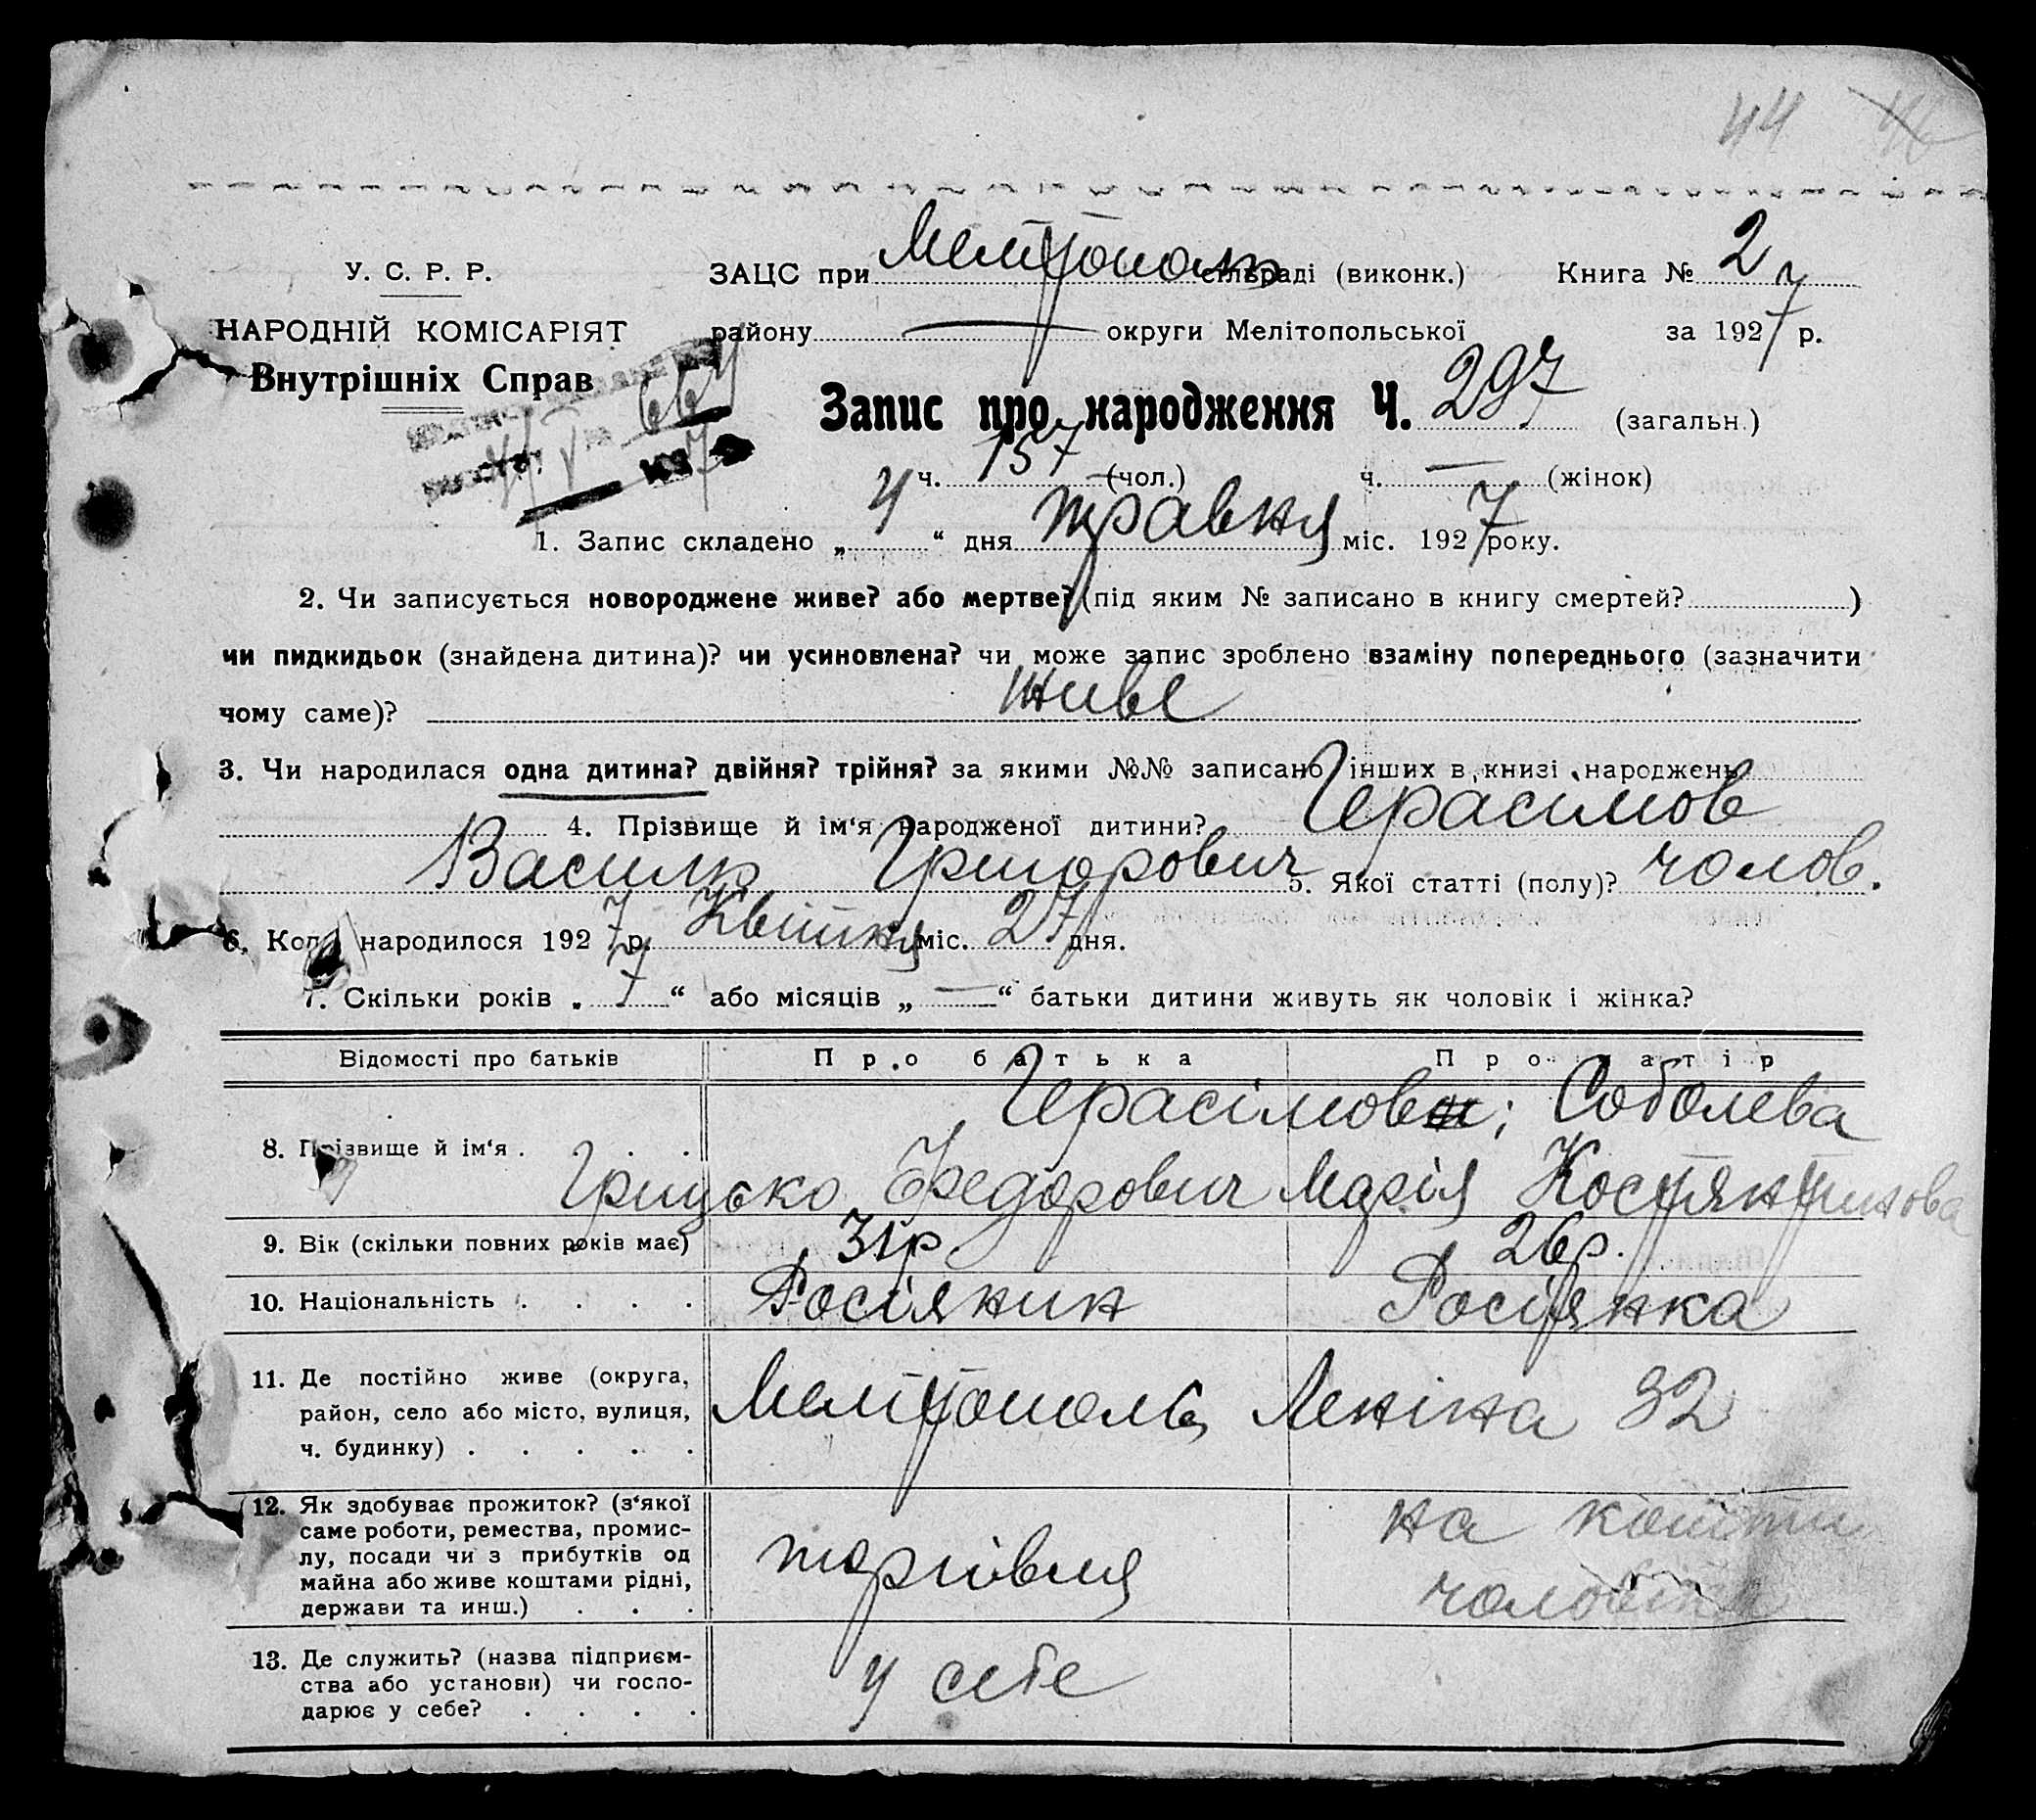 44 46
У. С. Р. Р. ЗАЦС при Мелітополь сільраді (виконк.) Книга № 2
НАРОДНІЙ КОМІСАРІЯТ району — округи Мелітопольської за 1927 р.
Внутрішніх Справ
664
Запис про народження Ч. 297 (загальн.)
ч. 157 (чол.) ч. — (жінок)
1. Запис складено „4“ дня травня міс. 1927 року.
2. Чи записується новороджене живе? або мертве? (під яким № записано в книгу смертей? )
чи пидкидьок (знайдена дитина)? чи усиновлена? чи може запис зроблено взаміну попереднього (зазначити
чому саме)? живе
3. Чи народилася одна дитина? двійня? трійня? за якими №№ записано інших в книзі народжень
4. Прізвище й ім‘я народженої дитини? Герасимов
Василь Григорович 5. Якої статті (полу)? чолов.
6. Коли народилося 1927 р. Квітня міс. 27 дня.
7. Скільки років „7“ або місяців „—“ батьки дитини живуть як чоловік і жінка?
Відомості про батьків Про батька Про матір
Герасімов; Соболева
8. Прізвище й ім‘я . . .
Грицько Федорович Марія Костянтинова
9. Вік (скільки повних років має) 31р 26р.
10. Національність . . . . Росіянин Росіянка
11. Де постійно живе (округа,
район, село або місто, вулиця, Мелітополь, Леніна 32
ч. будинку) . . . . .
12. Як здобуває прожиток? (з‘якої на кошти
саме роботи, ремества, промис-
лу, посади чи з прибутків од торгівля
майна або живе коштами рідні, чоловіка
держави та инш.) . . .
13. Де служить? (назва підприєм-
ства або установи) чи госпо- у себе
дарює у себе? . . . .